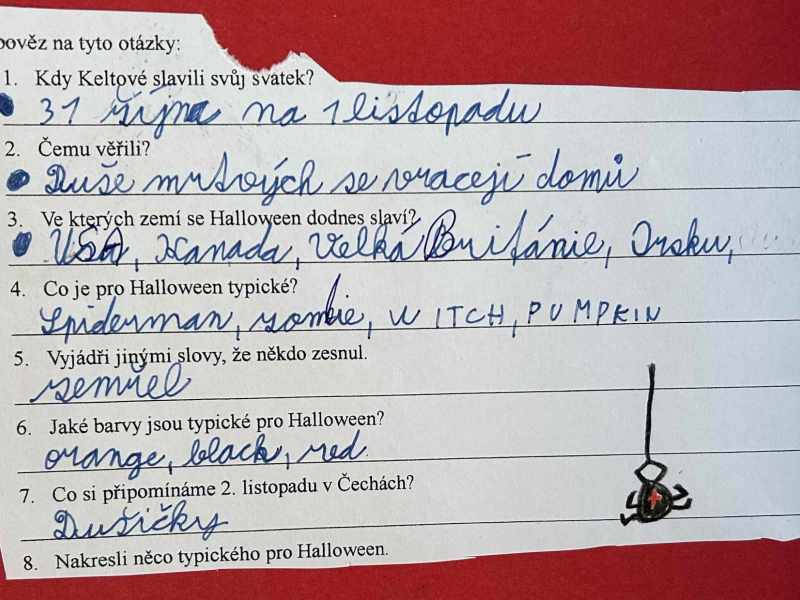 pověz na tyto otázky:
1. Kdy Keltové slavili svůj svátek?
31 října na 1 listopadu
2. Čemu věřili?
Duše mrtvých se vracejí domů
3. Ve kterých zemí se Halloween dodnes slaví?
USA, Kanada, Velká Británie, Irsku,
4. Co je pro Halloween typické?
Spiderman, zombie, WITCH, PUMPKIN
5. Vyjádři jinými slovy, že někdo zesnul.
zemřel
6. Jaké barvy jsou typické pro Halloween?
orange, black, red.
7. Co si připomínáme 2. listopadu v Čechách?
Dušičky
8. Nakresli něco typického pro Halloween.